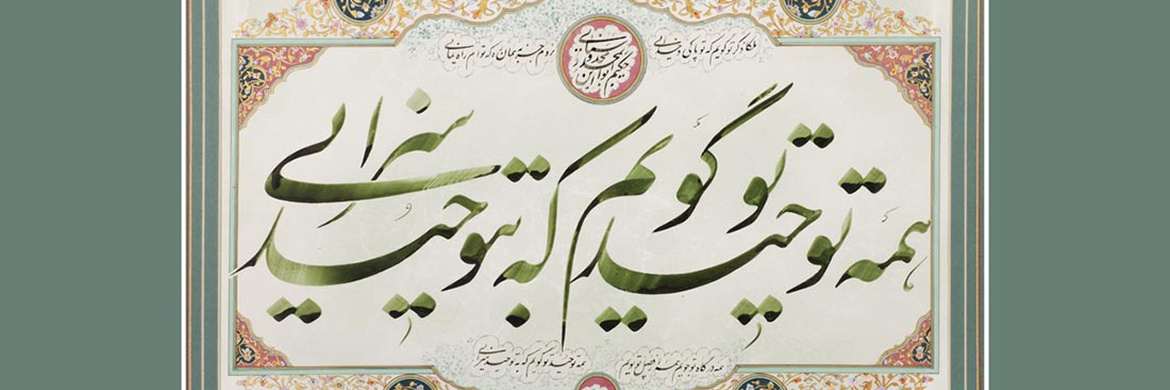 ملکا ذکر تو گویم که تو پاکی و خدایی نروم جز به همان ره که توام راه نمایی
همه توحید تو گویم که بتوحید سزایی
همه درگاه تو جویم همه از فضل تو پویم همه توحید تو گویم که به توحید سزایی